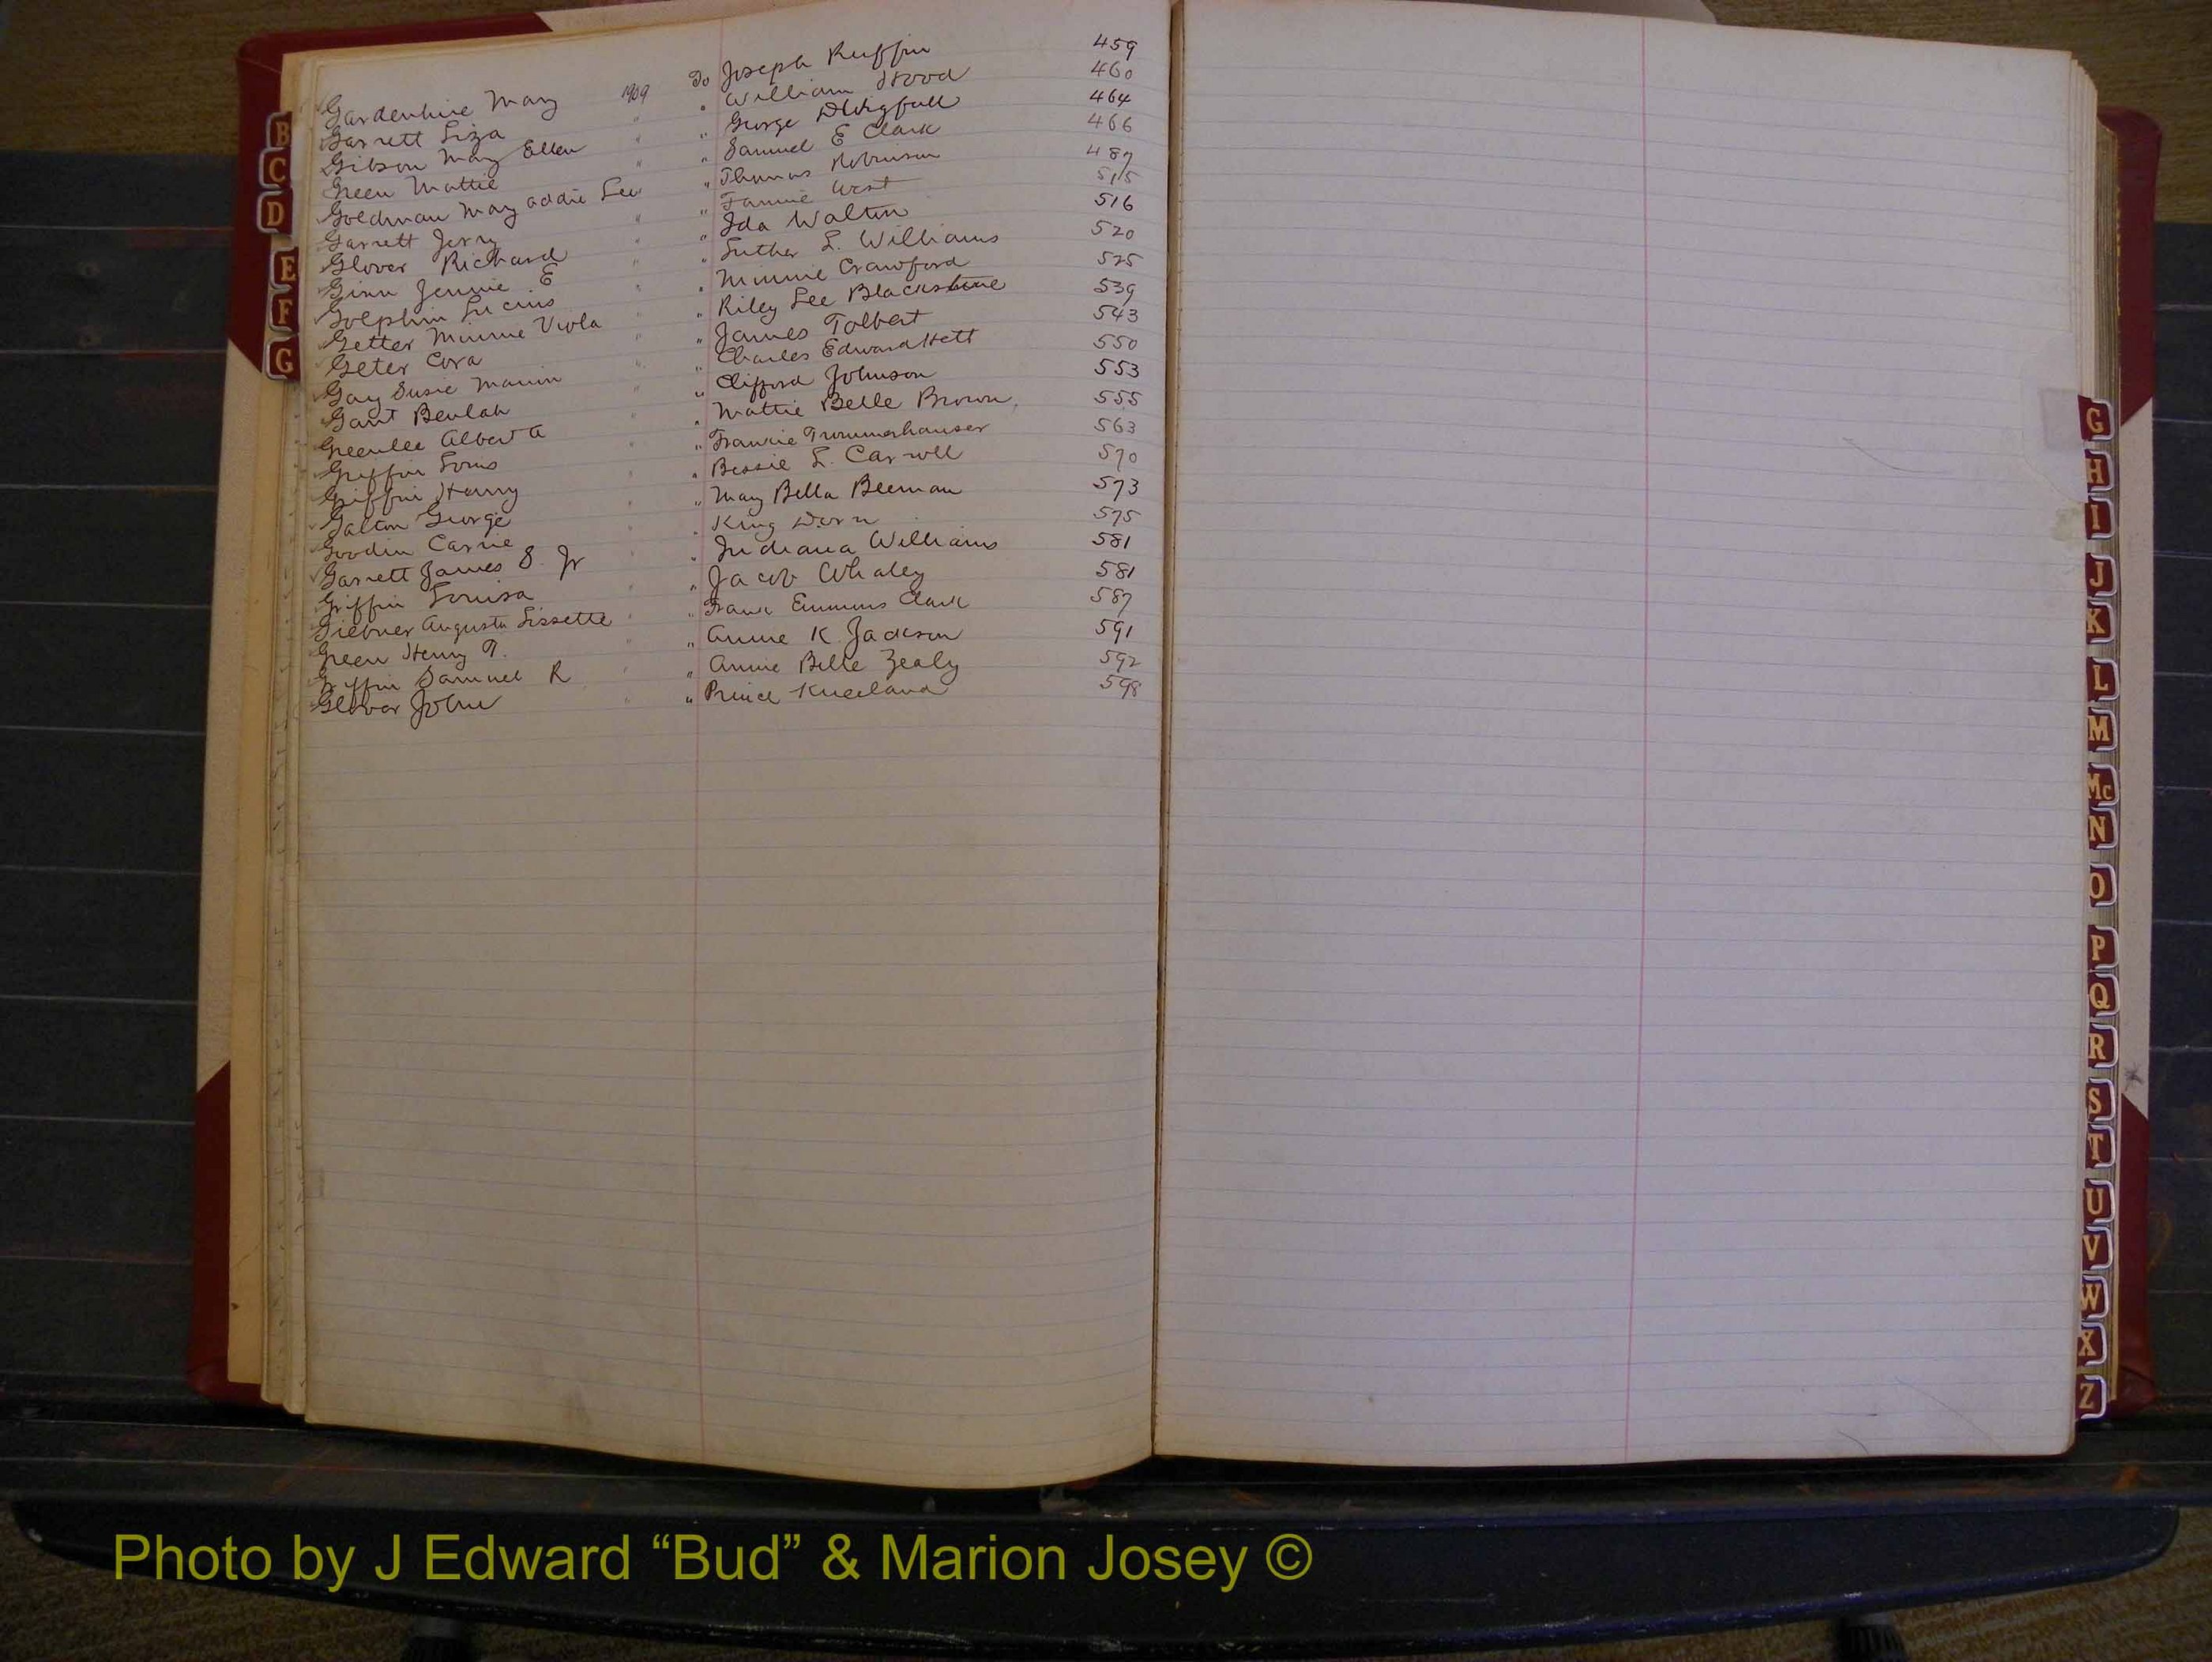 Gardenhire Mary 1909 To Joseph Ruffin 459
Garrett Liza " " William Hood 460
Gibson May Ellen " " George D Wigfall 464
Green Mattie " " Samuel E Clark 466
Goldman May Addie Lee " Thomas Robinson 487
Garrett Jerry " " Fannie West 515
Glover Richard " " Ida Walton 516
Ginn Jennie E " " Luther L. Williams 520
Golphin Lucius " " Minnie Crawford 525
Getter Minnie Viola " " Riley Lee Blackstone 539
Geter Cora " " James Tolbert 543
Gay Susie " " Charles Edward Hett 550
Gant Beulah " " Clifford Johnson 553
Greenlee Alberta " " Mattie Belle Brown 555
Griffin Louis " " Frankie Trummerhauser 563
Griffin Henry " " Bessie L. Carroll 570
Galton George " " May Bella Beeman 573
Goodin Carrie " " King Dorn 575
Garrett James S. Jr " " Indiana Williams 581
Griffin Louisa " " Jacob Whaley 581
Augusta Lissette " " Frank Emmons Clark 587
Green Henry T. " " Annie K Jackson 591
Griffin Samuel R " " Annie Belle Zealy 592
Glover John " " Prince Kneeland 598
B
C
D
E
F
G
G
H
I
J
K
L
M
Mc
N
O
P
Q
R
S
T
U
V
W
X
Z
Photo by J Edward “Bud” & Marion Josey ©